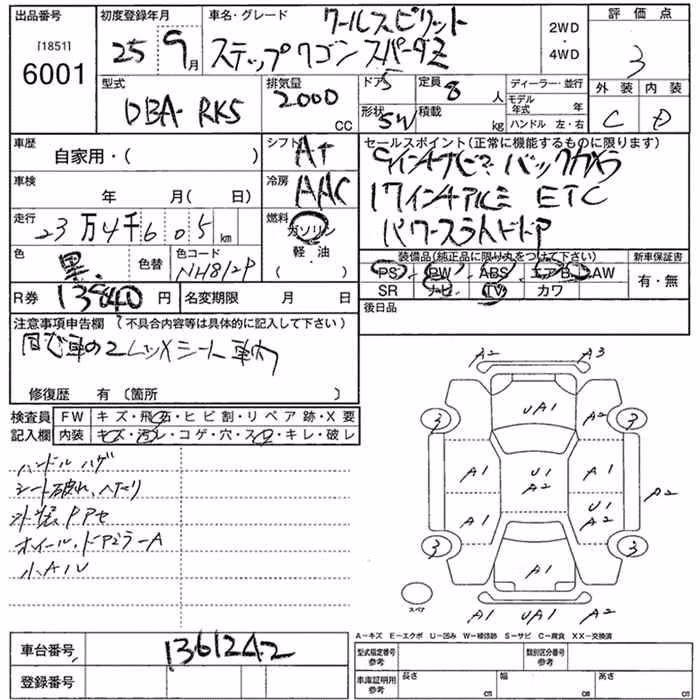 出品番号
[1851]
6001
初度登録年月
25 9月
車名・グレード
クールスピリット
ステップワゴン スパーダZ
2WD
・
4WD
評価点
3
外装 内装
C D
型式
DBA-RK5
排気量
2000 cc
ドア 5
形状 SW
定員 8 人
積載 kg
ディーラー・並行
モデル年式 年
ハンドル 左・右
車歴
自家用・( )
シフト AT
セールスポイント(正常に機能するものに限ります)
9インチナビ バックカメラ
17インチアルミ ETC
パワースライドドア
車検
年 月( 日)
冷房 AAC
走行
23万4千605km
燃料
ガソリン
軽・油
( )
色
黒
色替
色コード
NH812P
装備品(純正品に限り丸をつけて下さい)
PS・PW・ABS・エアB・AW
SR ナビ・TV カワ
新車保証書
有・無
R券 13840円
名変期限 月 日
後日品
注意事項申告欄(不具合内容等は具体的に記入して下さい)
シート車内
修復歴 有(箇所 )
検査員
記入欄
FW キズ・飛石・ヒビ割・リペア跡・X要
内装 キズ・汚レ・コゲ・穴・スレ・キレ・破レ
ハンドルハゲ
シート破れ、ヘタリ
外装PPセ
ホイール・ドアミラーA
小AIU
A2 A3
UA1
3 A2 3
A1 U1 A1
A2
A1 U1 A2
A2
3 3
A1
スペア
A1 UA1 A2
A-キズ E-エクボ U-凹み W-補修跡 S-サビ C-腐食 XX-交換済
車台番号 1361242
登録番号
型式指定番号
参考
類別区分番号
参考
車庫証明用
参考
長さ cm
幅 cm
高さ cm